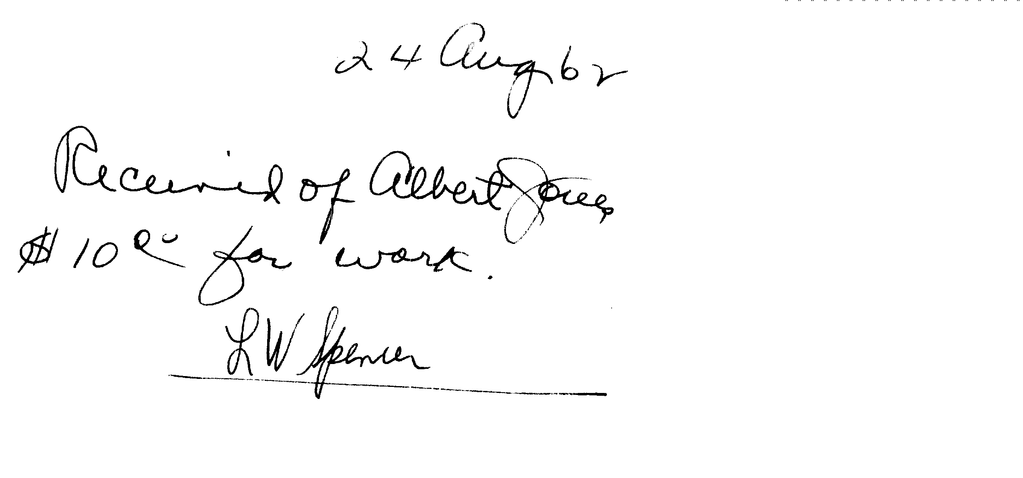 24 Aug 62
Received of Albert Jones
$10 00 for work.
L W Spencer